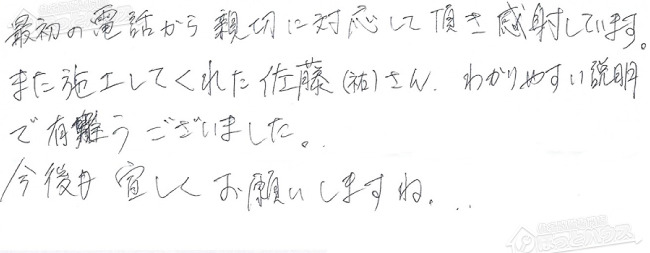 最初の電話から親切に対応して頂き感射しています。
また施工してくれた佐藤(祐)さん、わかりやすい説明
で有難うございました。
今後も宜しくお願いしますね。..